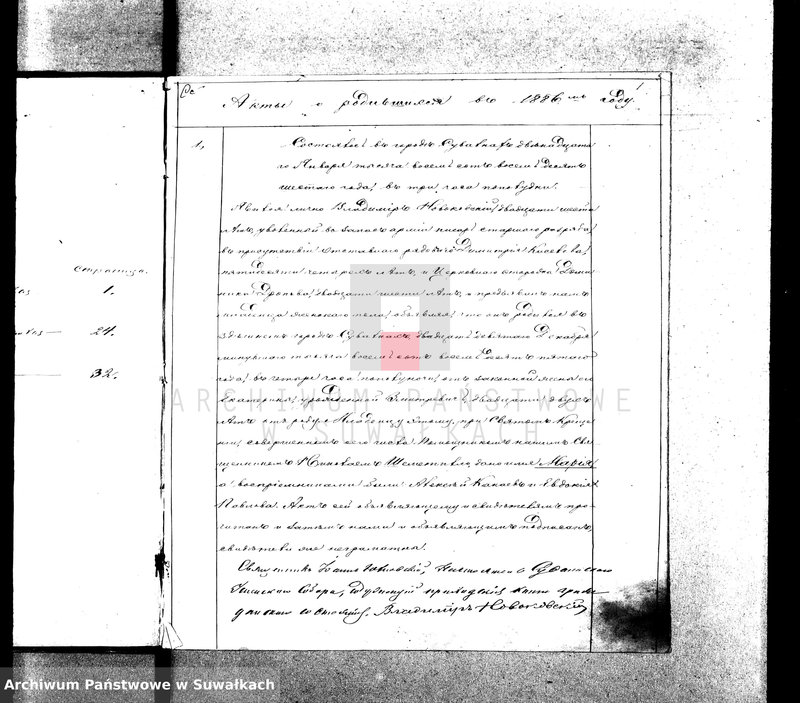 Акты о родившихся въ 1886мъ году.
1
1.
Состоялся въ городѣ Сувалкахъ двѣнадцата
го Января тысяча восемьсотъ восемьдесятъ
шестаго года, въ три часа пополудни.
Явился лично Владиміръ двадцати шести
лѣтъ, уволенный въ запасъ арміи писарь старшаго разряда,
въ присутствіи отставнаго рядоваго Димитрія
пятидесяти четырехъ лѣтъ, и Церковнаго сторожа
двадцати шести лѣтъ и предъявилъ намъ
младенца женскаго пола, объявляя, что онъ родился въ
здѣшнемъ городѣ Сувалкахъ двадцать девятаго Декабря
минувшаго тысяча восемьсотъ восемьдесятъ пятаго
года, въ четыре часа пополуночи, отъ законной жены его
Екатерины, урожденной Дмитревъ, двадцати двухъ
лѣтъ отъ роду. Младенцу этому, при Святомъ Креще
ніи, совершенномъ сего числа Помощникомъ нашимъ Свя
щенникомъ Николаемъ дано имя Марія,
а воспріемниками были Алексѣй и Евдокія
Павлова. Актъ сей объявляющему и свидѣтелямъ про
читанъ и затѣмъ нами и объявляющимъ подписанъ,
свидѣтели же неграмотны.
Священникъ Настоятель
Собора,
Владиміръ
страница.
1.
24.
32.
Archiwum Państwowe
w Suwałkach
Archiwum Państwowe w Suwałkach